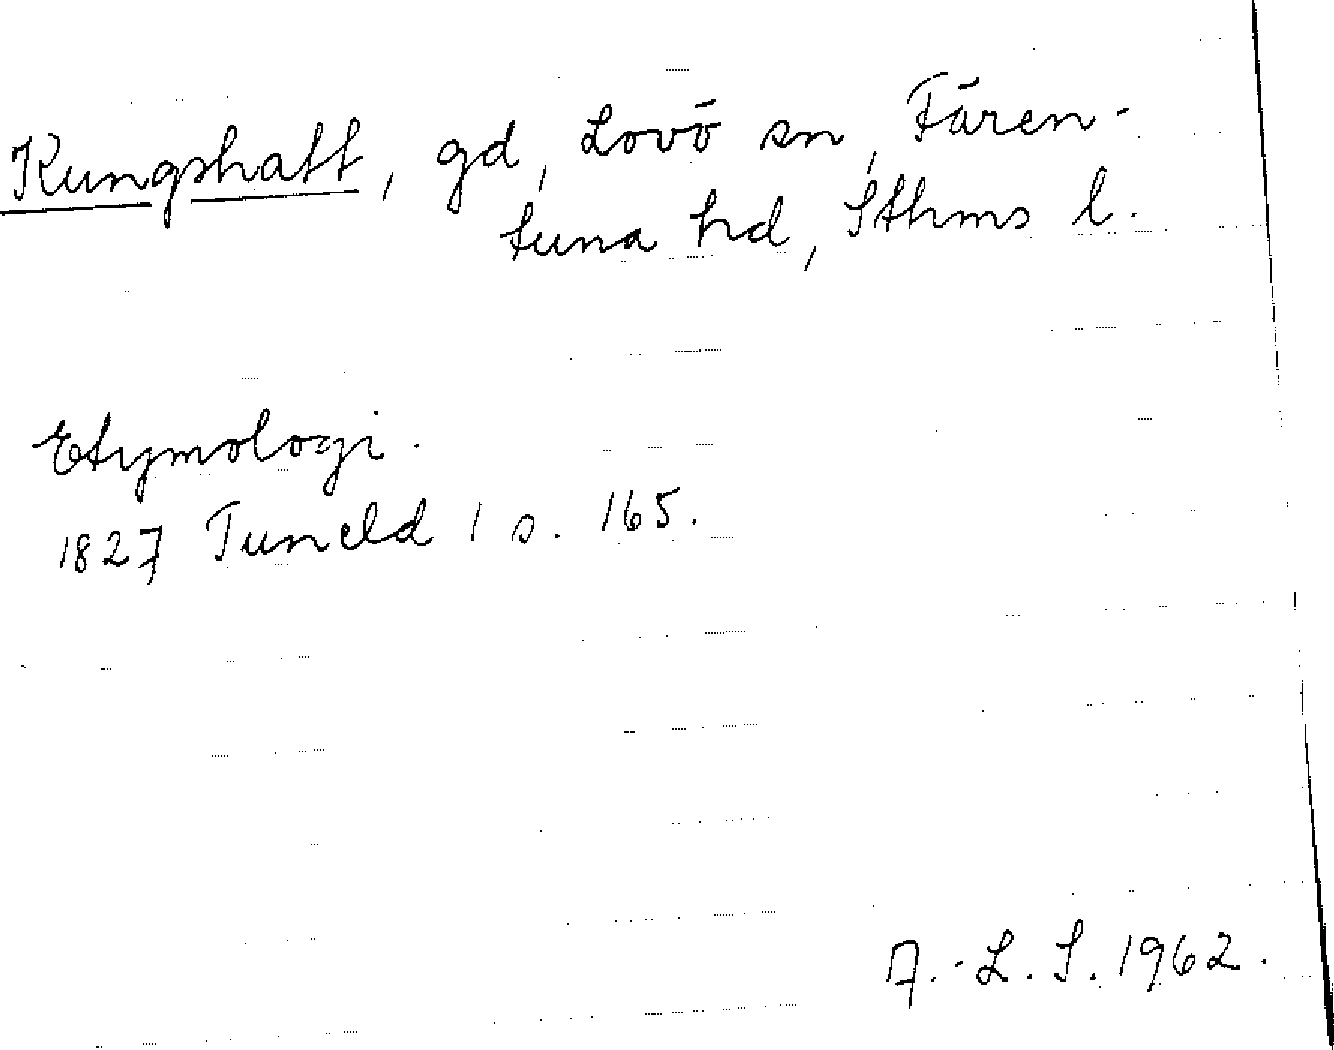 Kungshatt, gd, Lovö sn, Fären-
tuna hd, Sthms l.
Etymologi.
1827 Tuneld 1 s. 165.
A.-L. S. 1962.